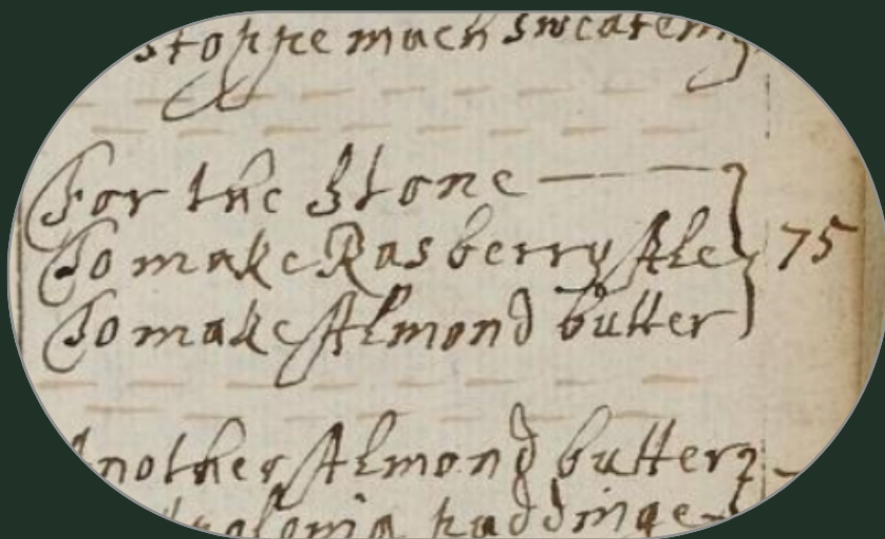 stoppe much sweatemg
For the Stone
To make Rasberry Ale
To make Almond butter
75
Another Almond butter
puddinge